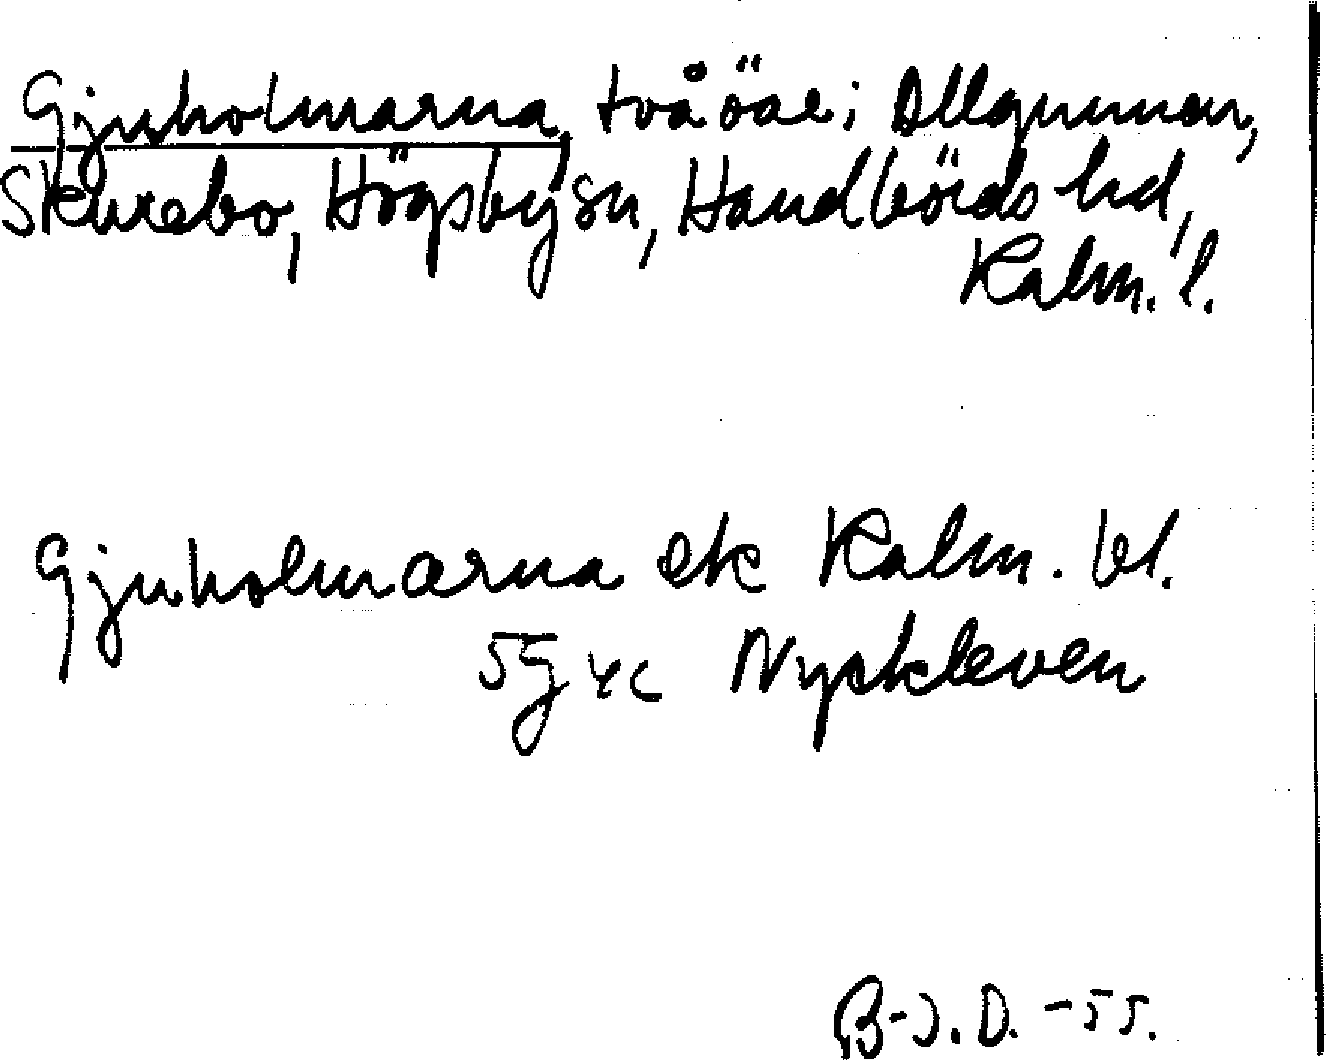 Gjuholmarna, två öar i Allgunnen,
Skurebo, Högsby sn, Handbörds hd,
Kalm. l.
Gjuholmarna ek Kalm. bl.
5G 4c Nyckleven
B-J. D. -55.